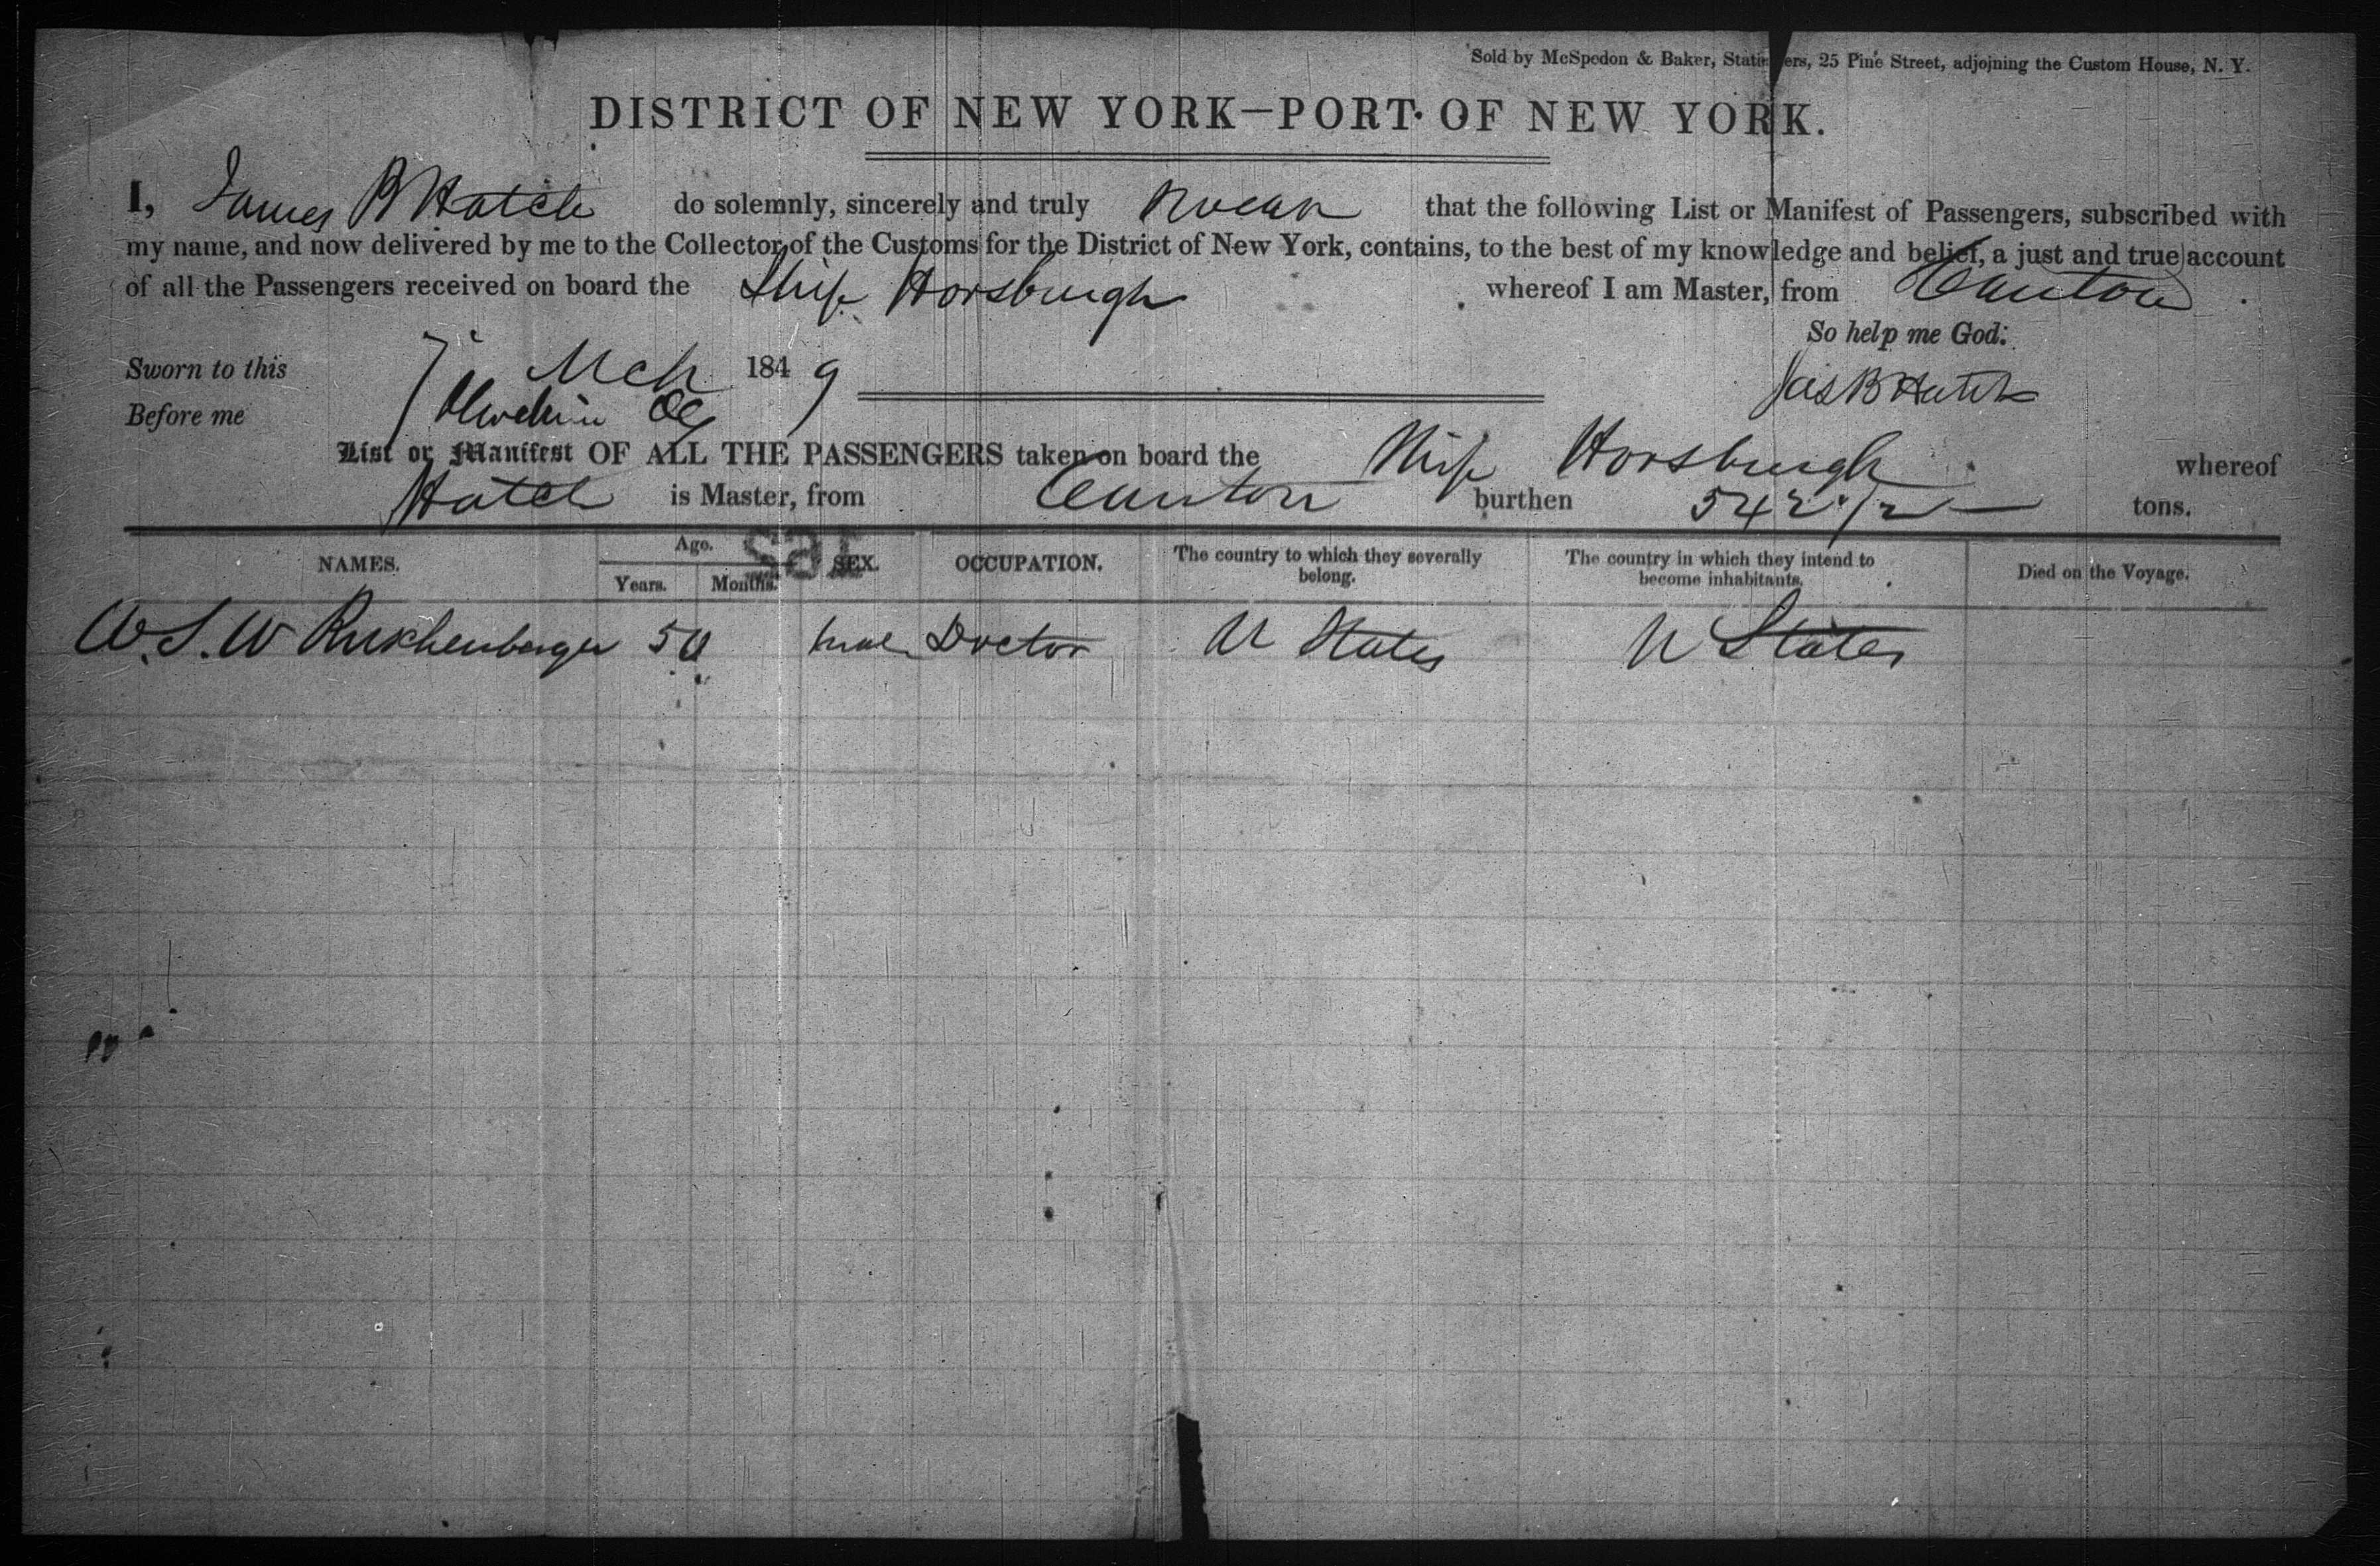 Sold by McSpedon & Baker, Stationers, 25 Pine Street, adjoining the Custom House, N. Y.
DISTRICT OF NEW YORK—PORT OF NEW YORK.
I, James B Hatch do solemnly, sincerely and truly swear that the following List or Manifest of Passengers, subscribed with
my name, and now delivered by me to the Collector of the Customs for the District of New York, contains, to the best of my knowledge and belief, a just and true account
of all the Passengers received on board the Ship Horsburgh whereof I am Master, from Canton
So help me God:
Sworn to this 7 Mch 1849
Jas B Hatch
Before me
List or Manifest OF ALL THE PASSENGERS taken on board the Ship Horsburgh whereof
Hatch is Master, from Canton burthen 542 tons.
NAMES. Age. Years. Months. SEX. OCCUPATION. The country to which they severally belong. The country in which they intend to become inhabitants. Died on the Voyage.
W. S. W Ruschenberger 50 male Doctor U States U States